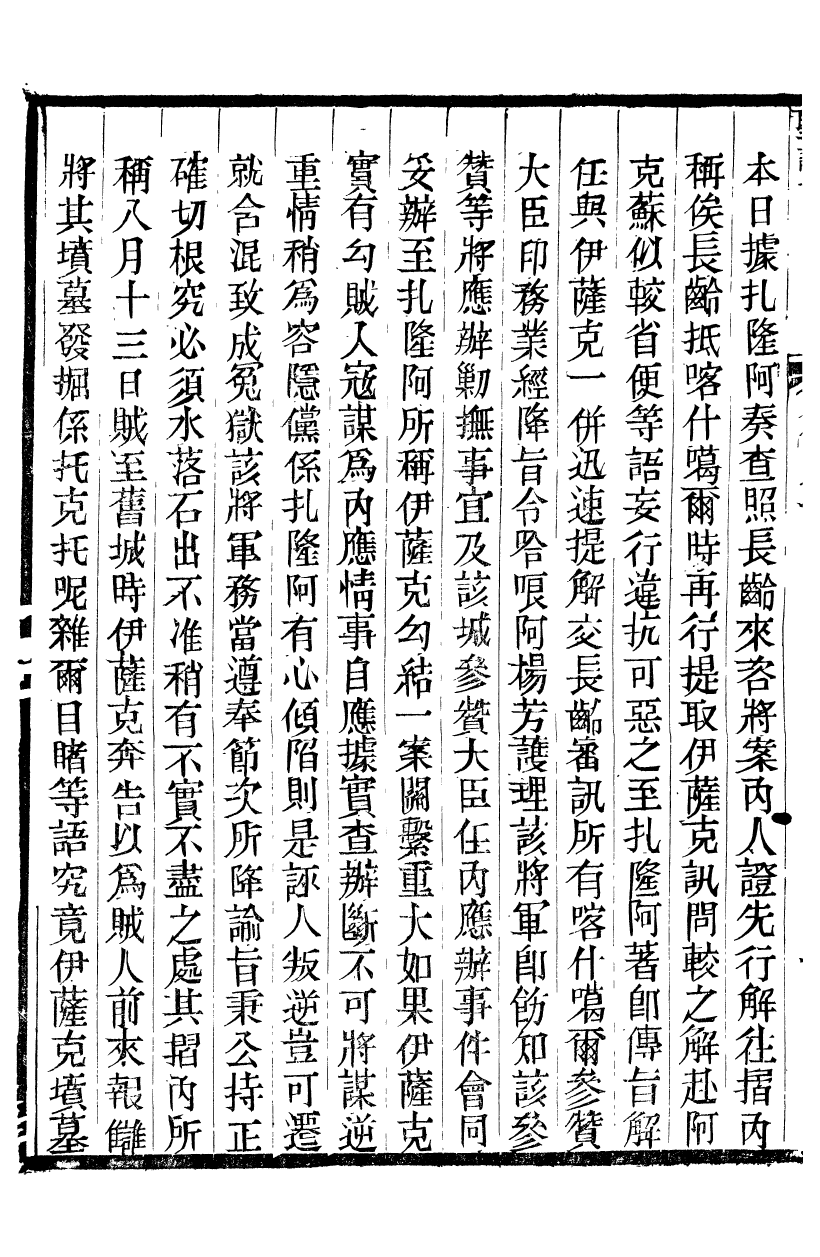 本日據扎隆阿奏查照長齡來咨將案內人證先行解往摺內
稱俟長齡抵喀什噶爾時再行提取伊薩克訊問較之解赴阿
克蘇似較省便等語妄行違抗可惡之至扎隆阿著卽傳旨解
任與伊薩克一併迅速提解交長齡審訊所有喀什噶爾參贊
大臣印務業經降旨令哈哴阿楊芳護理該將軍卽飭知該參
贊等將應辦勦撫事宜及該城參贊大臣任內應辦事件會同
妥辦至扎隆阿所稱伊薩克勾結一案關繫重大如果伊薩克
實有勾賊入寇謀為內應情事自應據實查辦斷不可將謀逆
重情稍為容隱儻係扎隆阿有心傾陷則是誣人叛逆豈可遷
就含混致成冤獄該將軍務當遵奉節次所降諭旨秉公持正
確切根究必須水落石出不准稍有不實不盡之處其摺內所
稱八月十三日賊至舊城時伊薩克奔告以為賊人前來報讎
將其墳墓發掘係托克托呢雜爾目睹等語究竟伊薩克墳墓